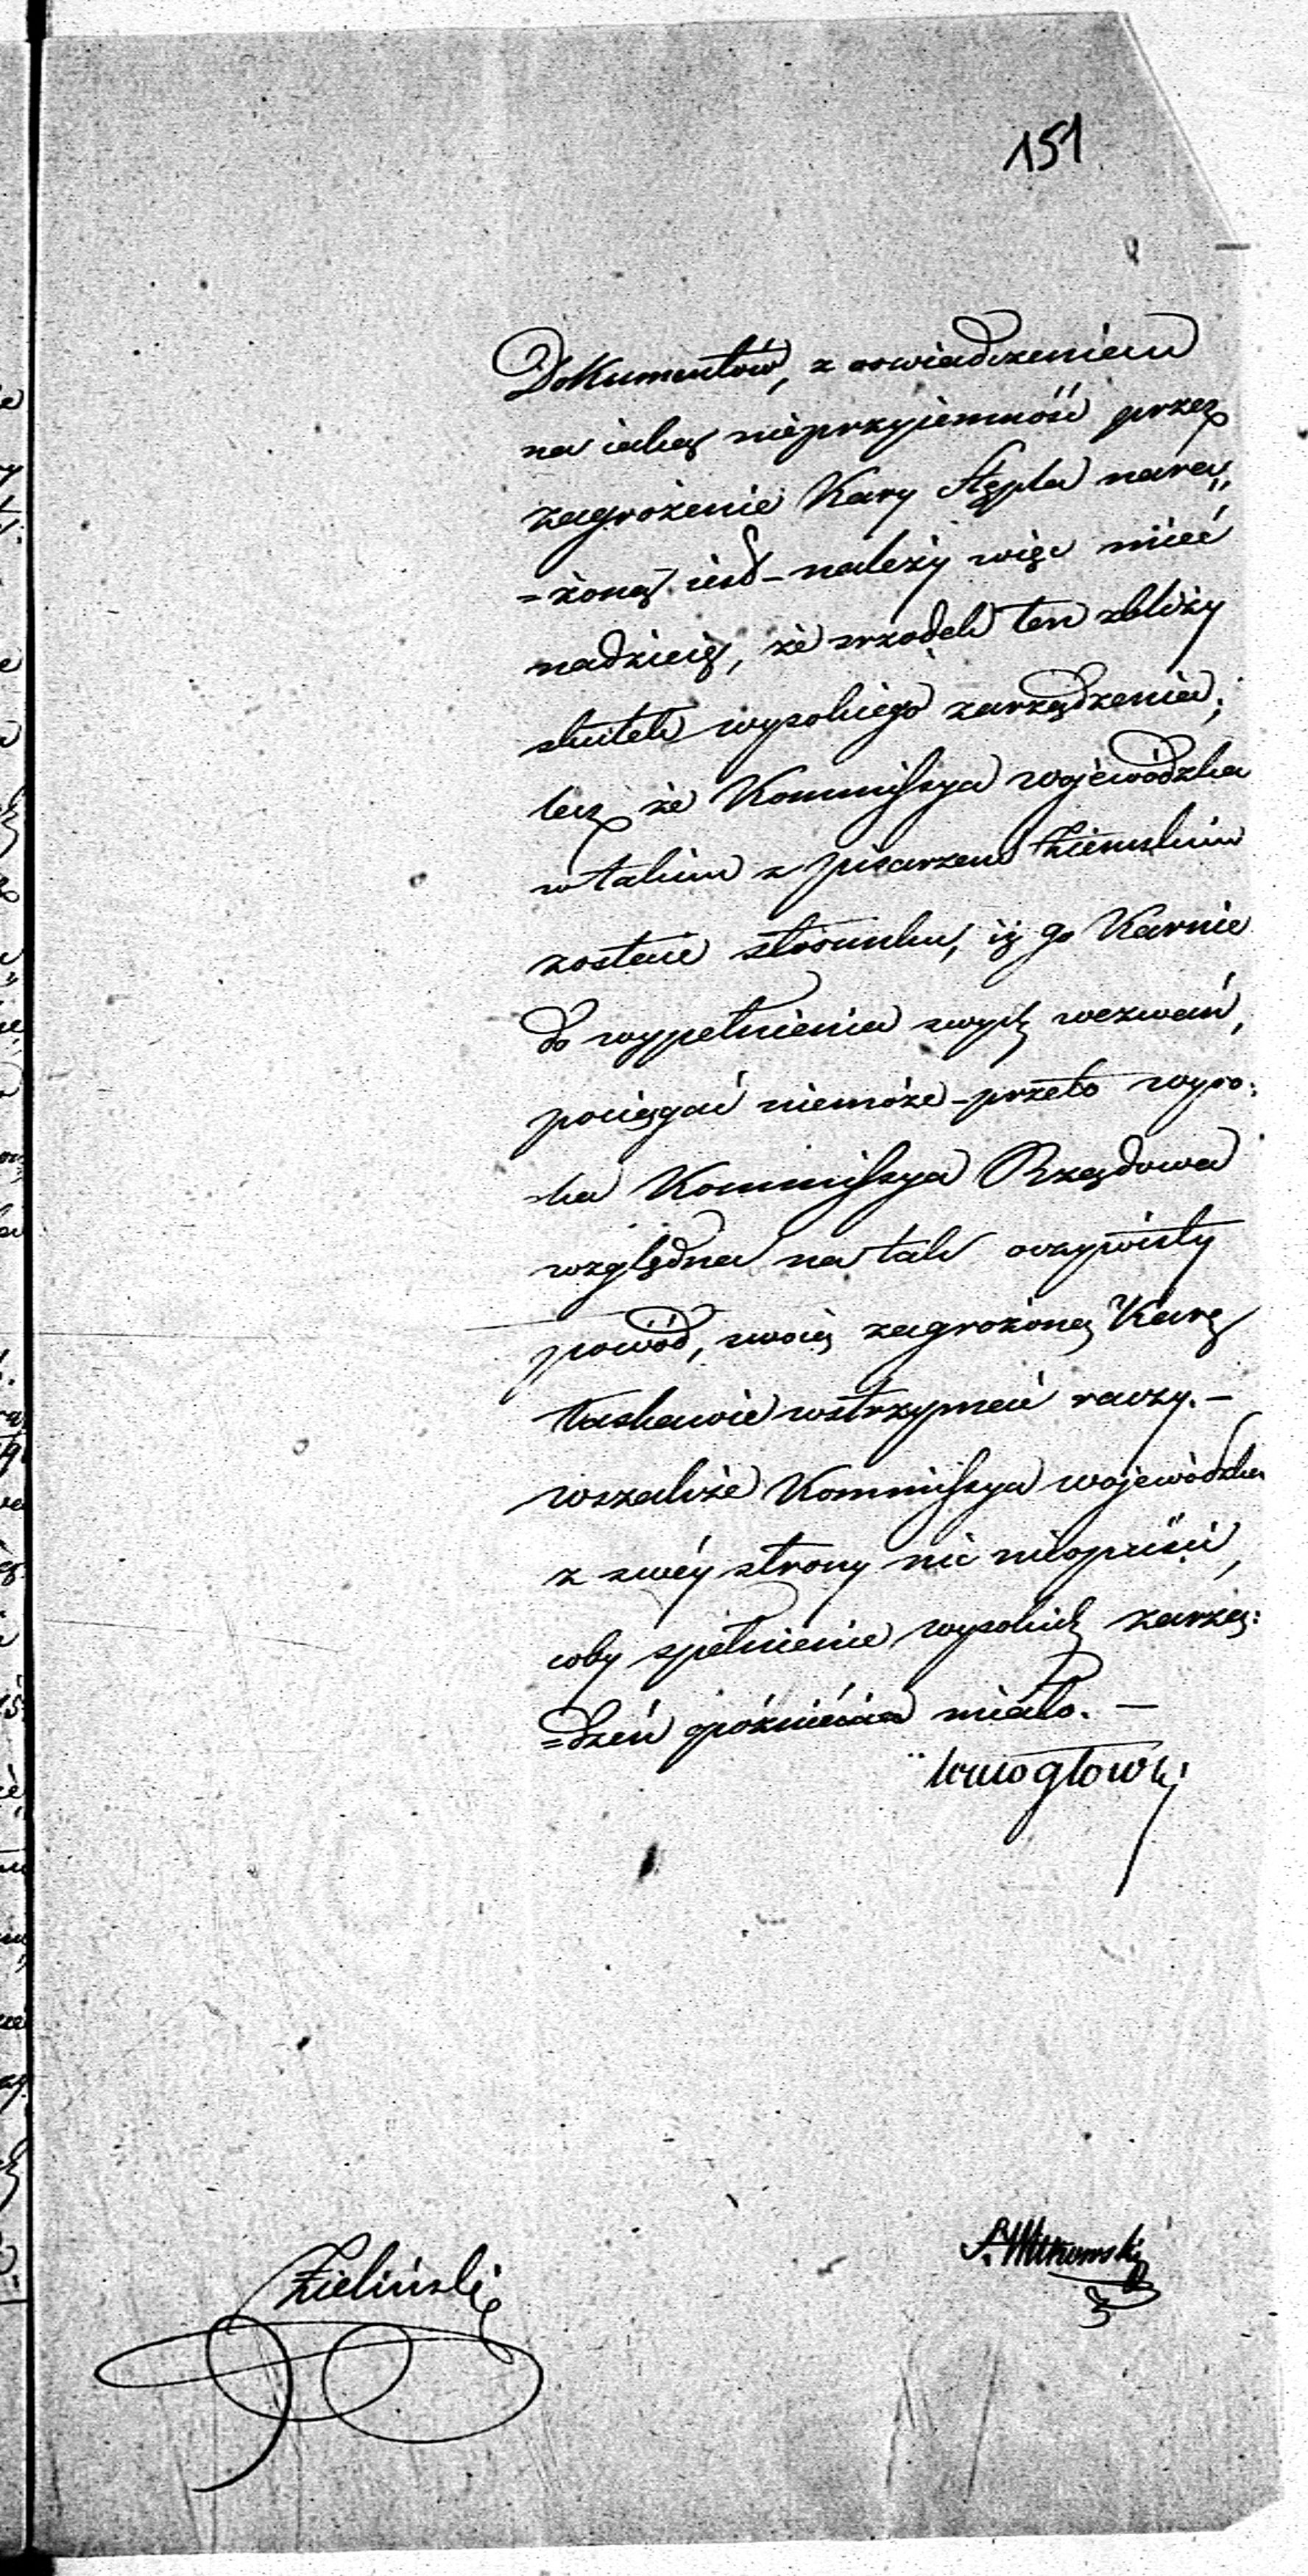 151
Dokumentów, z oswiadczeniem
na iaką nieprzyiemność przez
zagrożenie Kary Stępla nara„
=żoną iest – należy więc mieć
nadzieię, że srzodek ten zbliży
skutek wysokiego zarządzenia;
lecz że Kommissya wojewódzka
w takim z pisarzem Ziemskim
zostaie stosunku, iż go Karnie
do wypełnienia swych wezwań,
pociągać niemoże – przeto wyso:
ka Kommissya Rządowa
względna na tak oczywisty
powód, swoią zagrożoną Karę
łaskawie wstrzymać raczy. –
wszakże Kommissya wojewódzka
z swéy strony nic nieopuści,
coby spełnienie wysokich zarzą:
=dzeń opóźniać miało. –
Zieliński